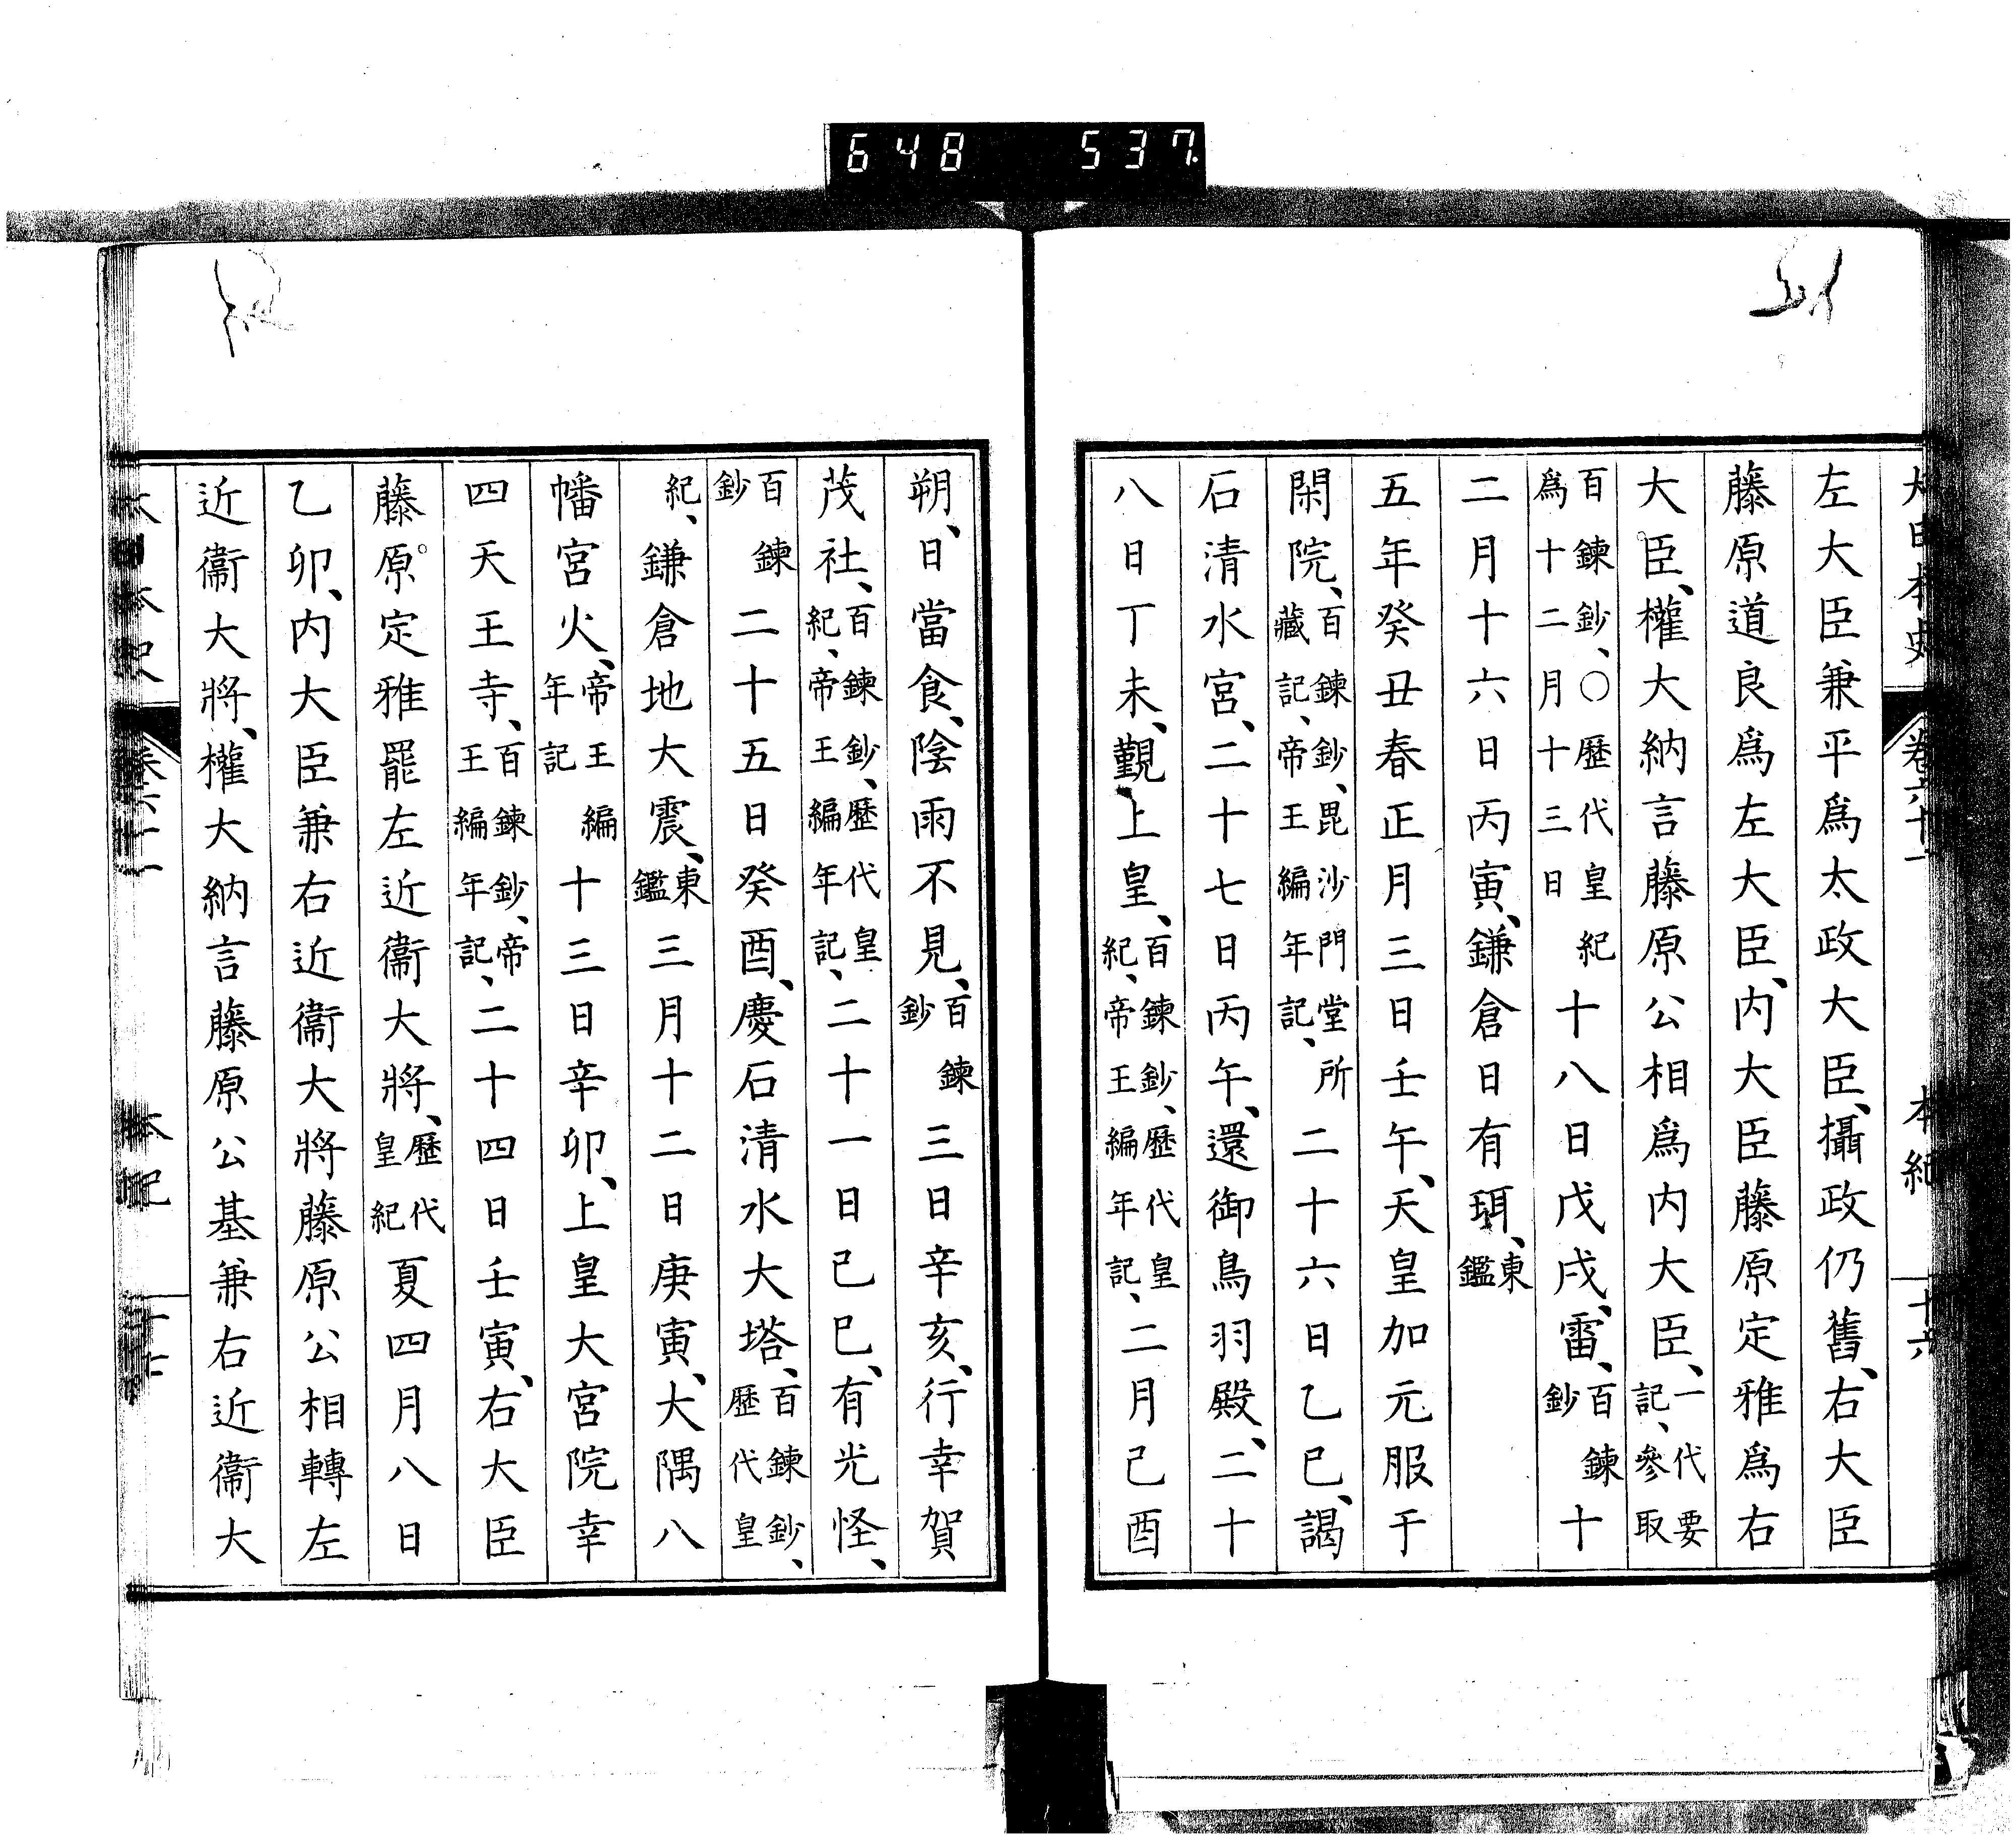 648 537
大日本史 卷六十一 本紀 十六
左大臣兼平爲太政大臣、攝政仍舊、右大臣
藤原道良爲左大臣、内大臣藤原定雅爲右
大臣、權大納言藤原公相爲内大臣、一代要記、參取
百鍊鈔、〇歷代皇紀爲十二月十三日十八日戊戌、雷、百鍊鈔十
二月十六日丙寅、鎌倉日有珥、東鑑
五年癸丑春正月三日壬午、天皇加元服于
閑院、百鍊鈔、毘沙門堂所藏記、帝王編年記、二十六日乙巳、謁
石清水宮、二十七日丙午、還御鳥羽殿、二十
八日丁未、覲上皇、百鍊鈔、歷代皇紀、帝王編年記、二月己酉
朔、日當食、陰雨不見、百鍊鈔三日辛亥、行幸賀
茂社、百鍊鈔、歷代皇紀、帝王編年記、二十一日己巳、有光怪、
百鍊鈔二十五日癸酉、慶石清水大塔、百鍊鈔、歷代皇
紀、鎌倉地大震、東鑑三月十二日庚寅、大隅八
幡宮火、帝王編年記十三日辛卯、上皇大宮院幸
四天王寺、百鍊鈔、帝王編年記、二十四日壬寅、右大臣
藤原定雅罷左近衞大將、歷代皇紀夏四月八日
乙卯、内大臣兼右近衞大將藤原公相轉左
近衞大將、權大納言藤原公基兼右近衞大
大日本史 卷六十一 本紀 十七